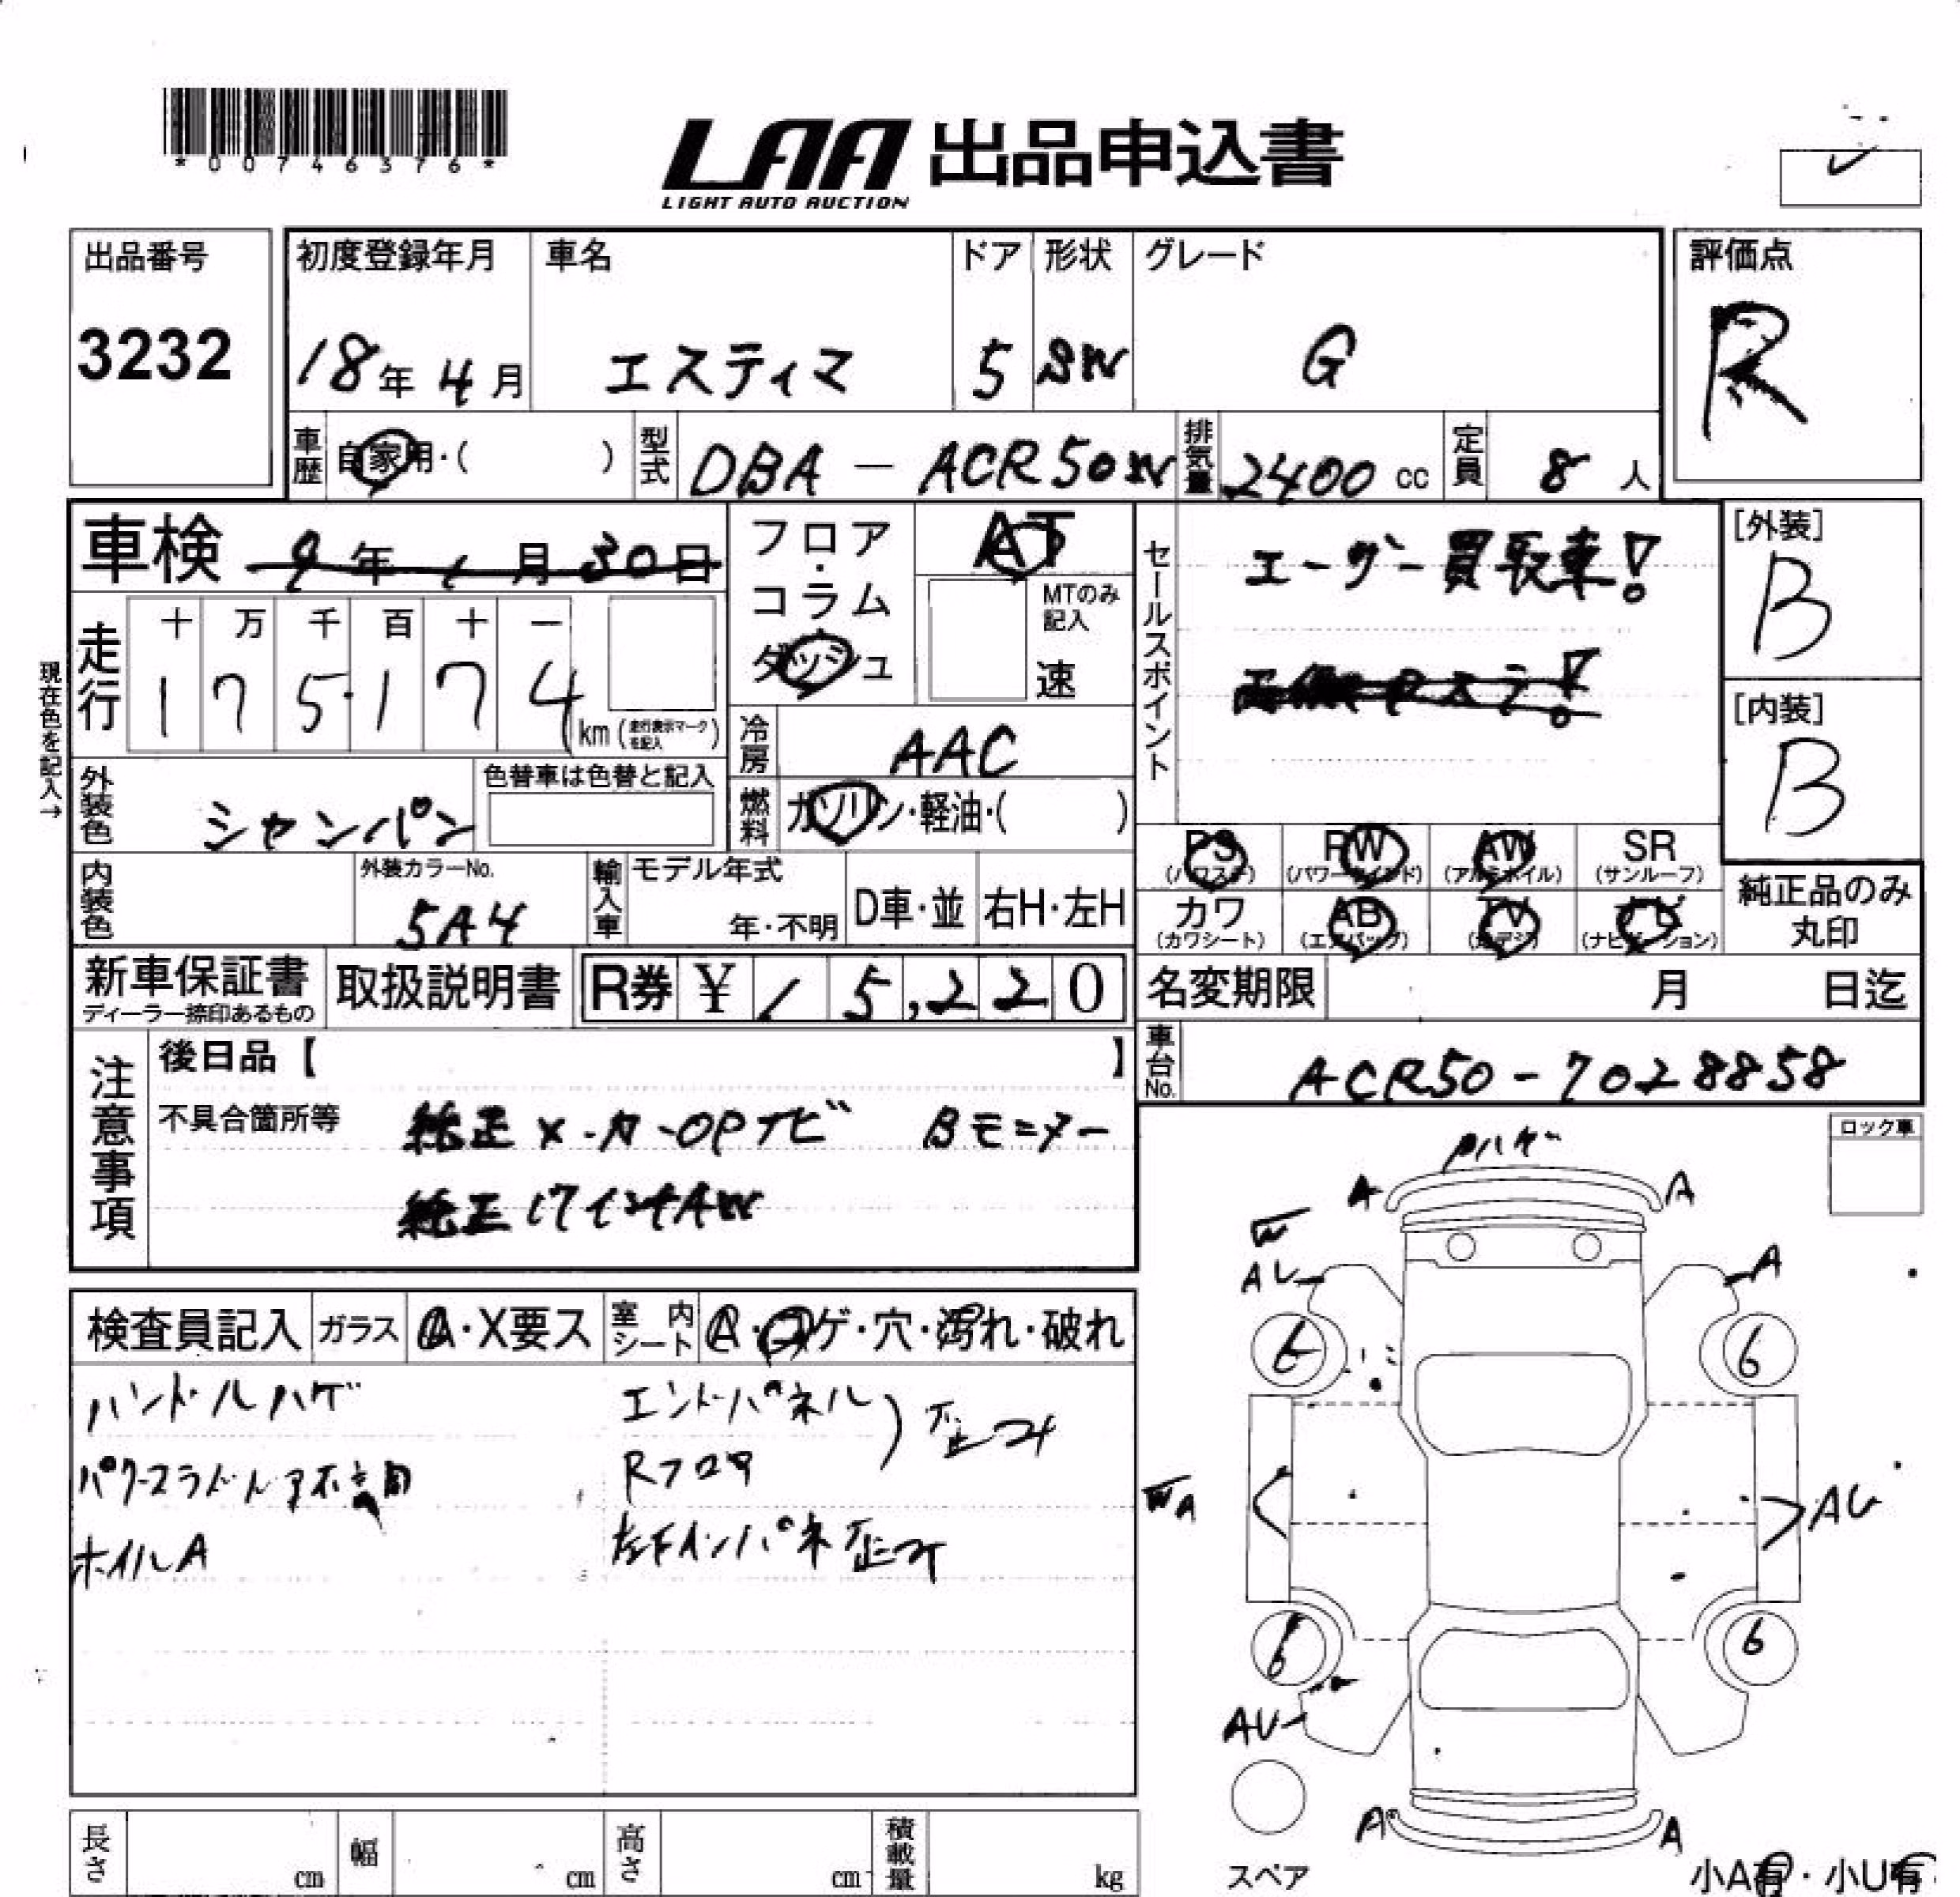 *00746376*
LAA 出品申込書
LIGHT AUTO AUCTION
出品番号
3232
初度登録年月
18年 4月
車名
エスティマ
ドア
5
形状
SW
グレード
G
評価点
R
車歴
自家用・( )
型式
DBA - ACR50W
排気量
2400 cc
定員
8 人
車検 9年 1月 30日
走行
十 万 千 百 十 一
175.174
km (走行表示マークを記入)
現在色を記入→
フロア・コラム
ダッシュ
AT
MTのみ記入
速
冷房
AAC
燃料
ガソリン・軽油・( )
セールスポイント
ユーザー買取車!
[外装]
B
[内装]
B
外装色
シャンパン
色替車は色替と記入
内装色
外装カラーNo.
5A4
輸入車
モデル年式
年・不明
D車・並
右H・左H
PS (パワステ)
PW (パワーウインド)
AW (アルミホイル)
SR (サンルーフ)
カワ (カワシート)
AB (エアバック)
TV (地デジ)
ナビ (ナビゲーション)
純正品のみ
丸印
新車保証書
ディーラー捺印あるもの
取扱説明書
R券 ¥ 15,220
名変期限 月 日迄
車台No.
ACR50-7028858
注意事項
後日品【 】
不具合箇所等
純正メーカーOPナビ Bモニター
純正17インチAW
ロック車
検査員記入
ガラス
A・X要ス
室内シート
A・コゲ・穴・汚れ・破れ
ハンドルハゲ
パワースライドドア不良
ホイルA
エンドパネル
Rフロア
歪み
左下インパネ歪み
Pハゲ
A
A
W
AU
A
6
6
WA
AU
6
6
AU
A
A
スペア
小A有・小U有
長さ
cm
幅
cm
高さ
cm
積載量
kg